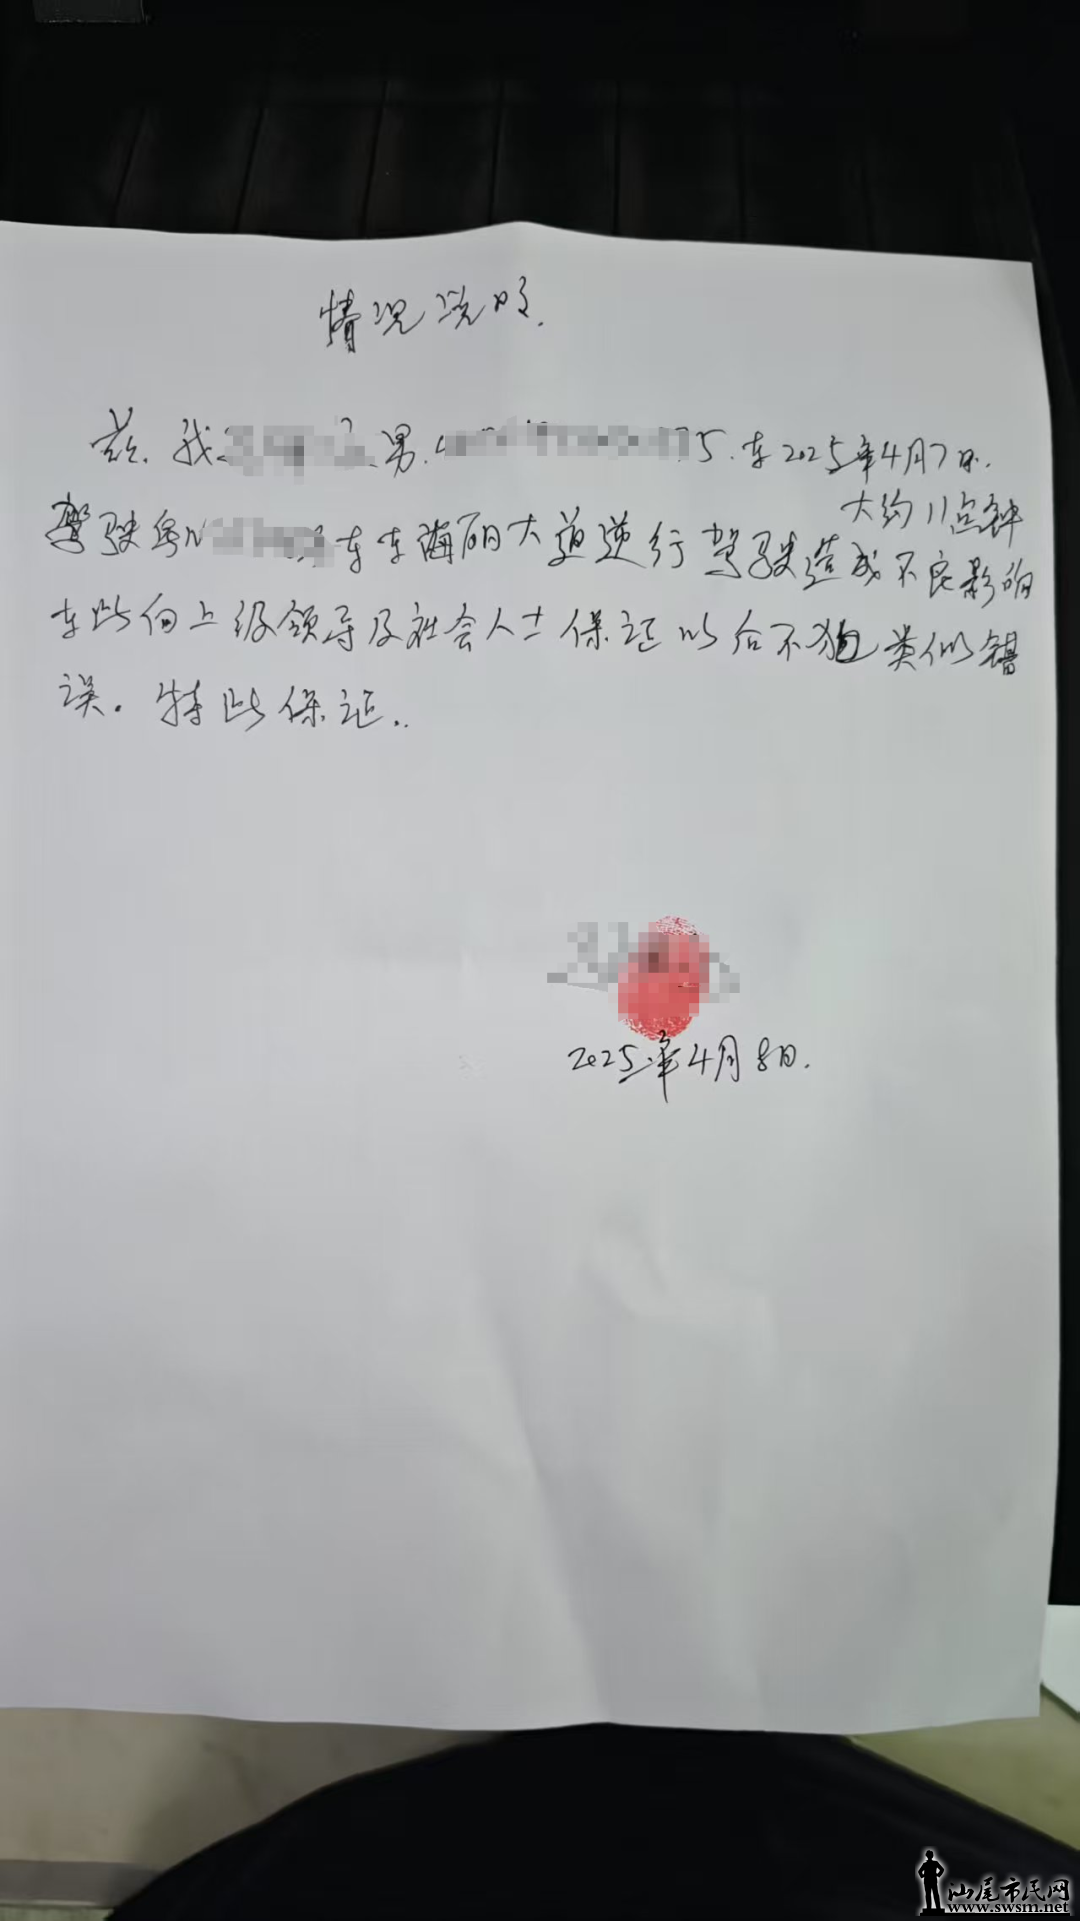 情况说明.
兹.我 男. 5.在2025年4月7日.
大约11点钟
驾驶粤N 车在海丽大道逆行驾驶造成不良影响
在此向上级领导及社会人士保证以后不犯类似错
误.特此保证..
2025年4月8日.
汕尾市民网
www.swsm.net